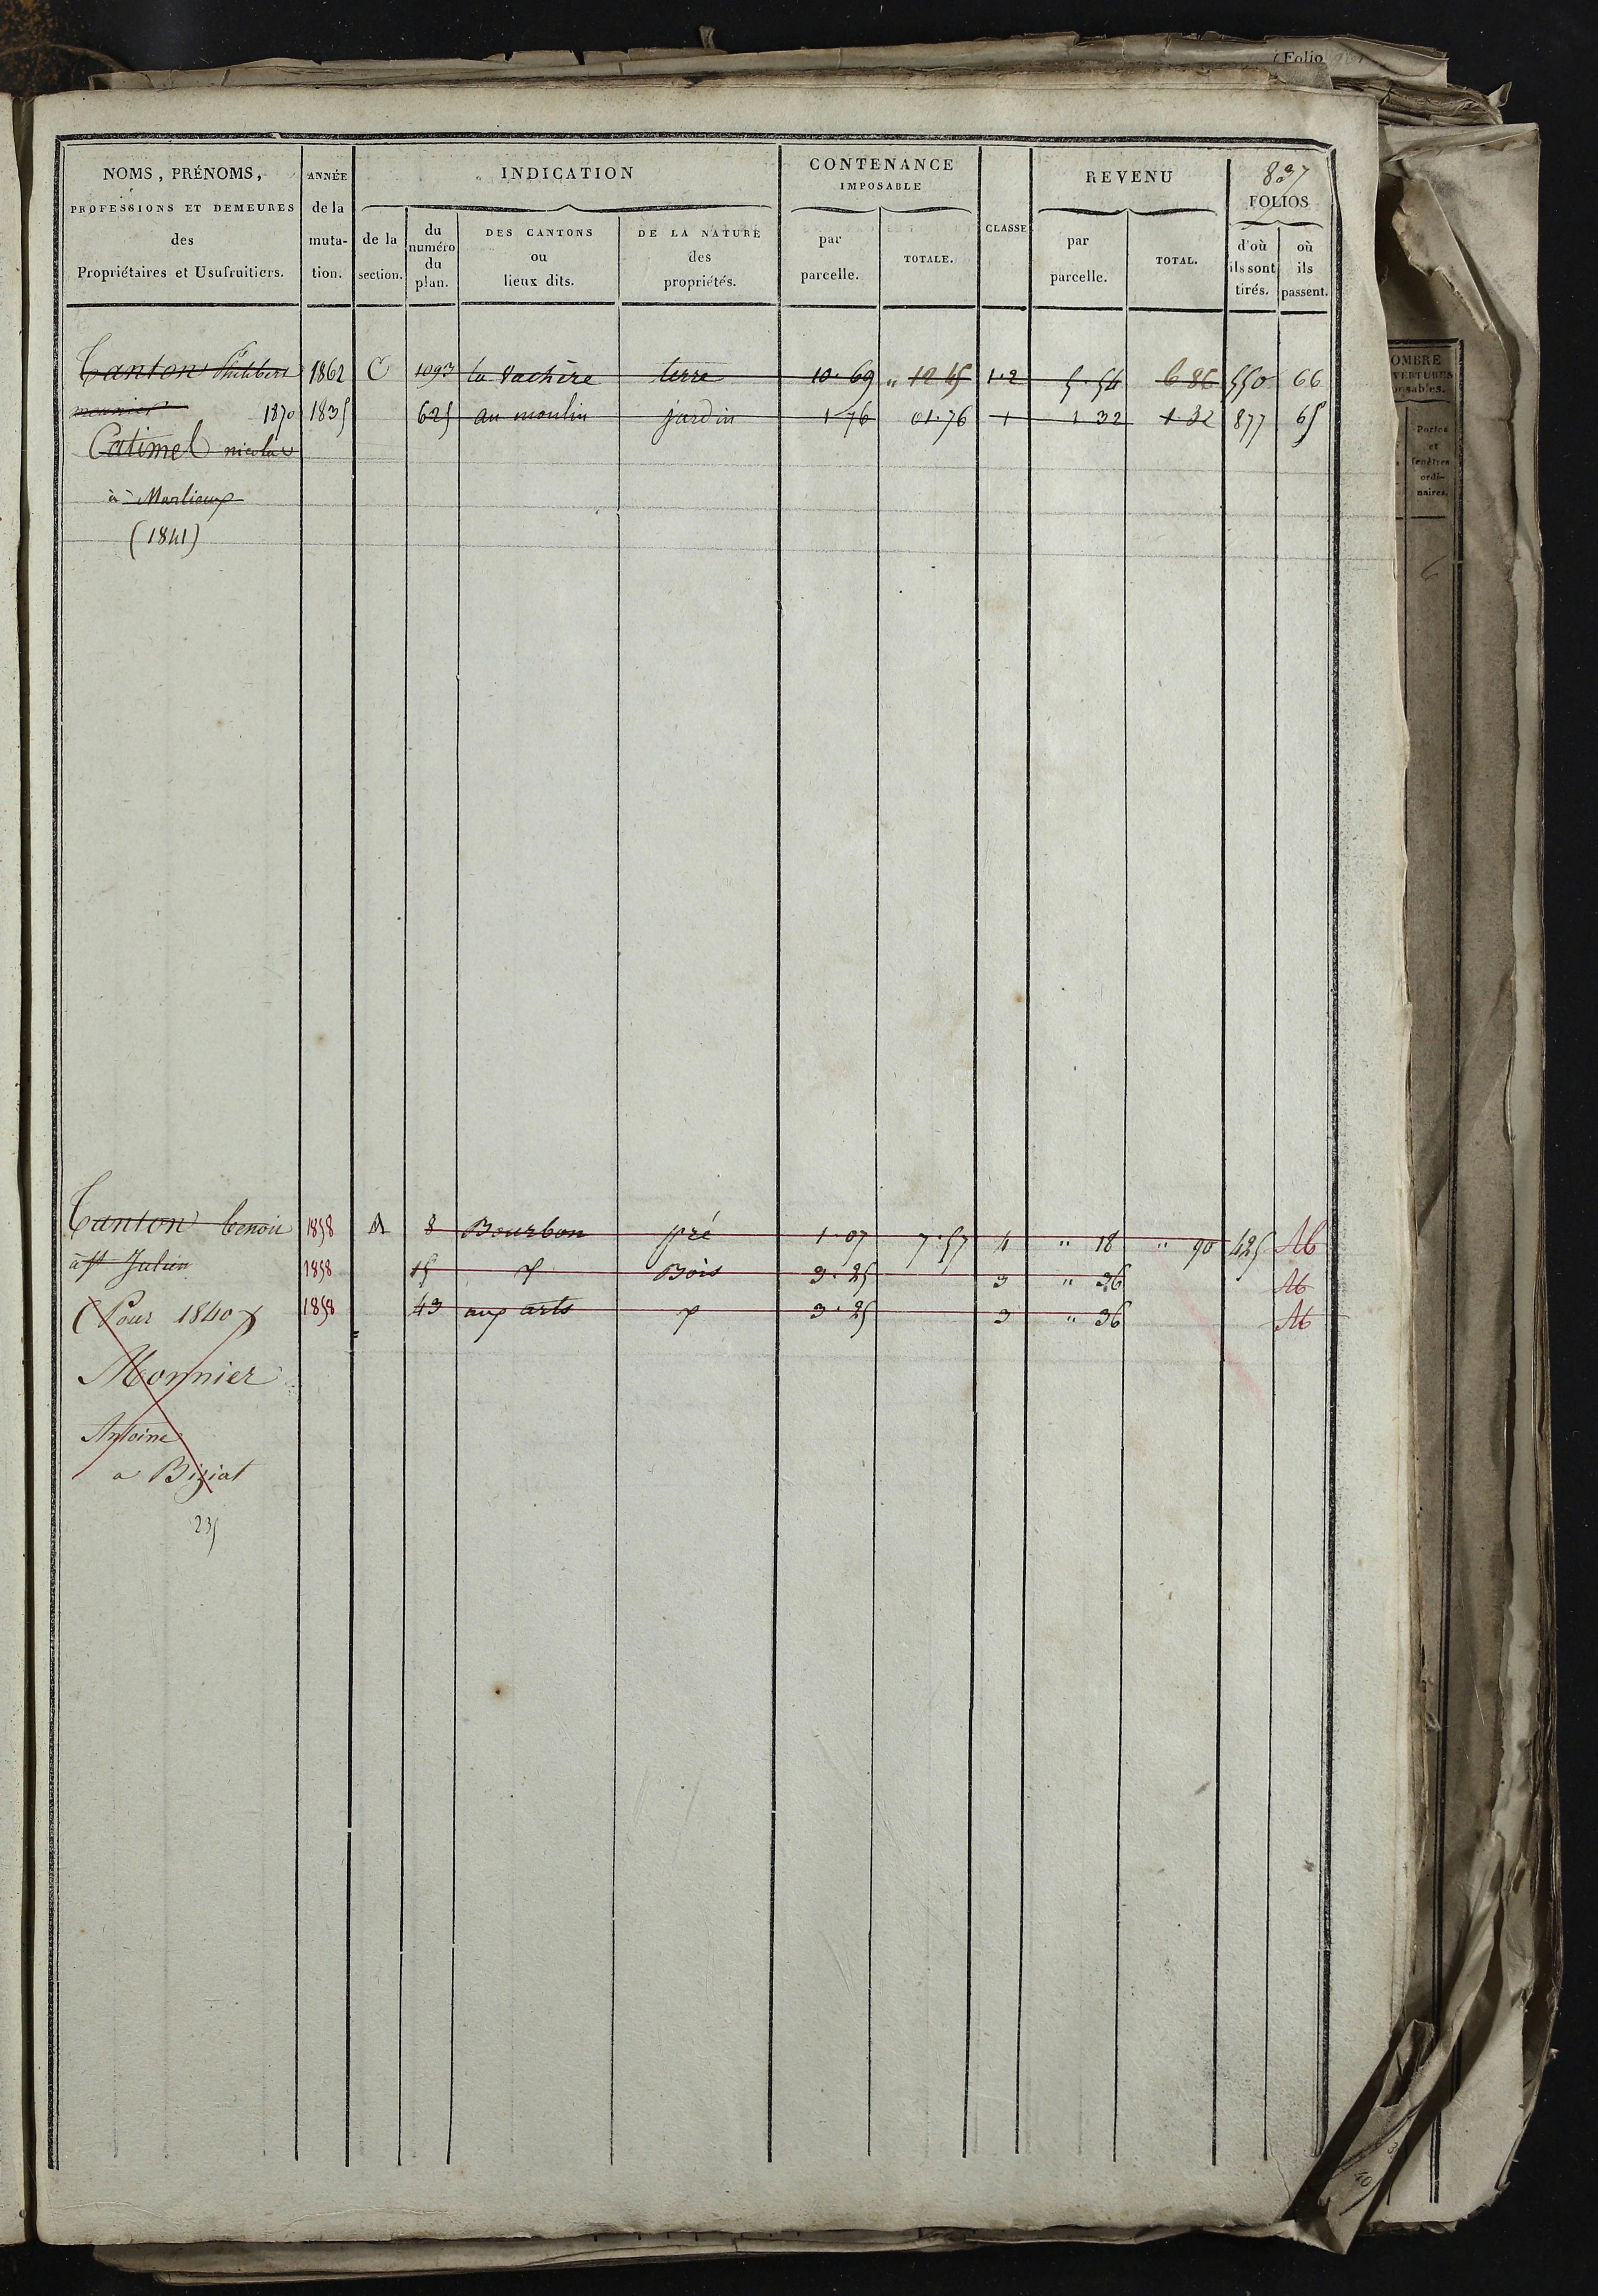 (Folio
837
NOMS, PRÉNOMS, PROFESSIONS ET DEMEURES des Propriétaires et Usufruitiers.
ANNÉE de la mutation.
INDICATION
de la section.
du numéro du plan.
DES CANTONS ou lieux dits.
DE LA NATURE des propriétés.
CONTENANCE IMPOSABLE
par parcelle.
TOTALE.
CLASSE
REVENU
par parcelle.
TOTAL.
FOLIOS
d'où ils sont tirés.
où ils passent.
Canton Philibert 1862 C 1093 la Vachère terre 10.69 " 12 45 1.2 5.54 6 86 550 66
meunier 1870 1835 625 au moulin jardin 1 76 01.76 1 1 32 1.32 877 65
Catimel nicolas
à Marlieux
(1841)
Canton benoit 1858 A 8 Bourbon pré 1.07 7.57 4 " 18 " 90 425 Ab
à St Julien 1858 15 Bois 3.25 3 " 36 Ab
(Pour 1840) 1858 43 aux arts 3.25 3 " 36 Ab
Monnier
Antoine
a Biziat
235
OMBRE
VERTURES
posables.
Portes
et
fenêtres
ordi-
naires.
6